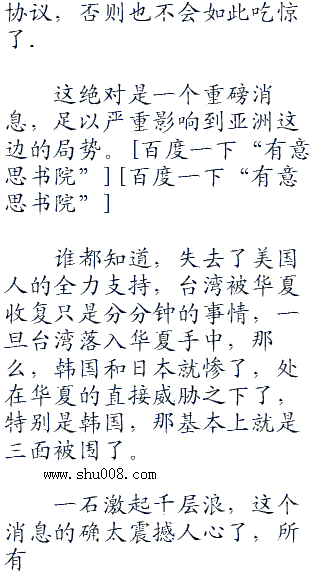 协议，否则也不会如此吃惊
了.
这绝对是一个重磅消
息，足以严重影响到亚洲这
边的局势。[百度一下“有意
思书院”][百度一下“有意
思书院”]
谁都知道，失去了美国
人的全力支持，台湾被华夏
收复只是分分钟的事情，一
旦台湾落入华夏手中，那
么，韩国和日本就惨了，处
在华夏的直接威胁之下了，
特别是韩国，那基本上就是
三面被围了。
www.shu008.com
一石激起千层浪，这个
消息的确太震撼人心了，所
有